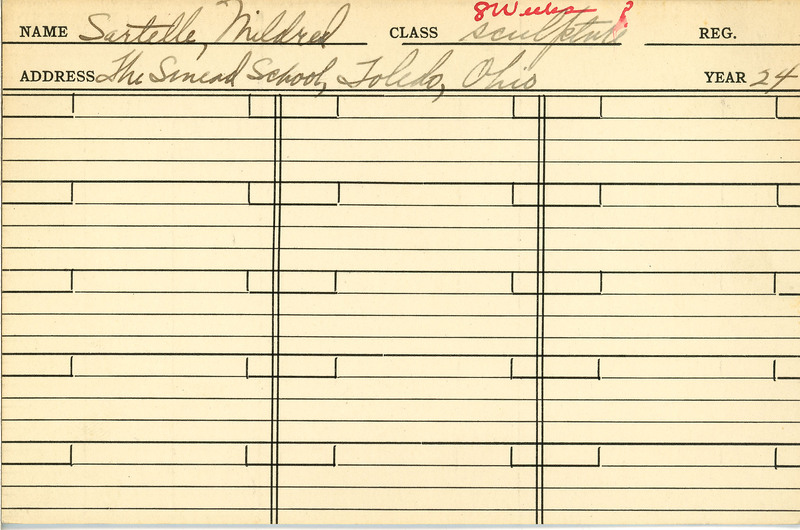 8 Weeks ?
NAME Sartelle, Mildred CLASS sculpture REG.
ADDRESS The Smead School, Toledo, Ohio YEAR 24